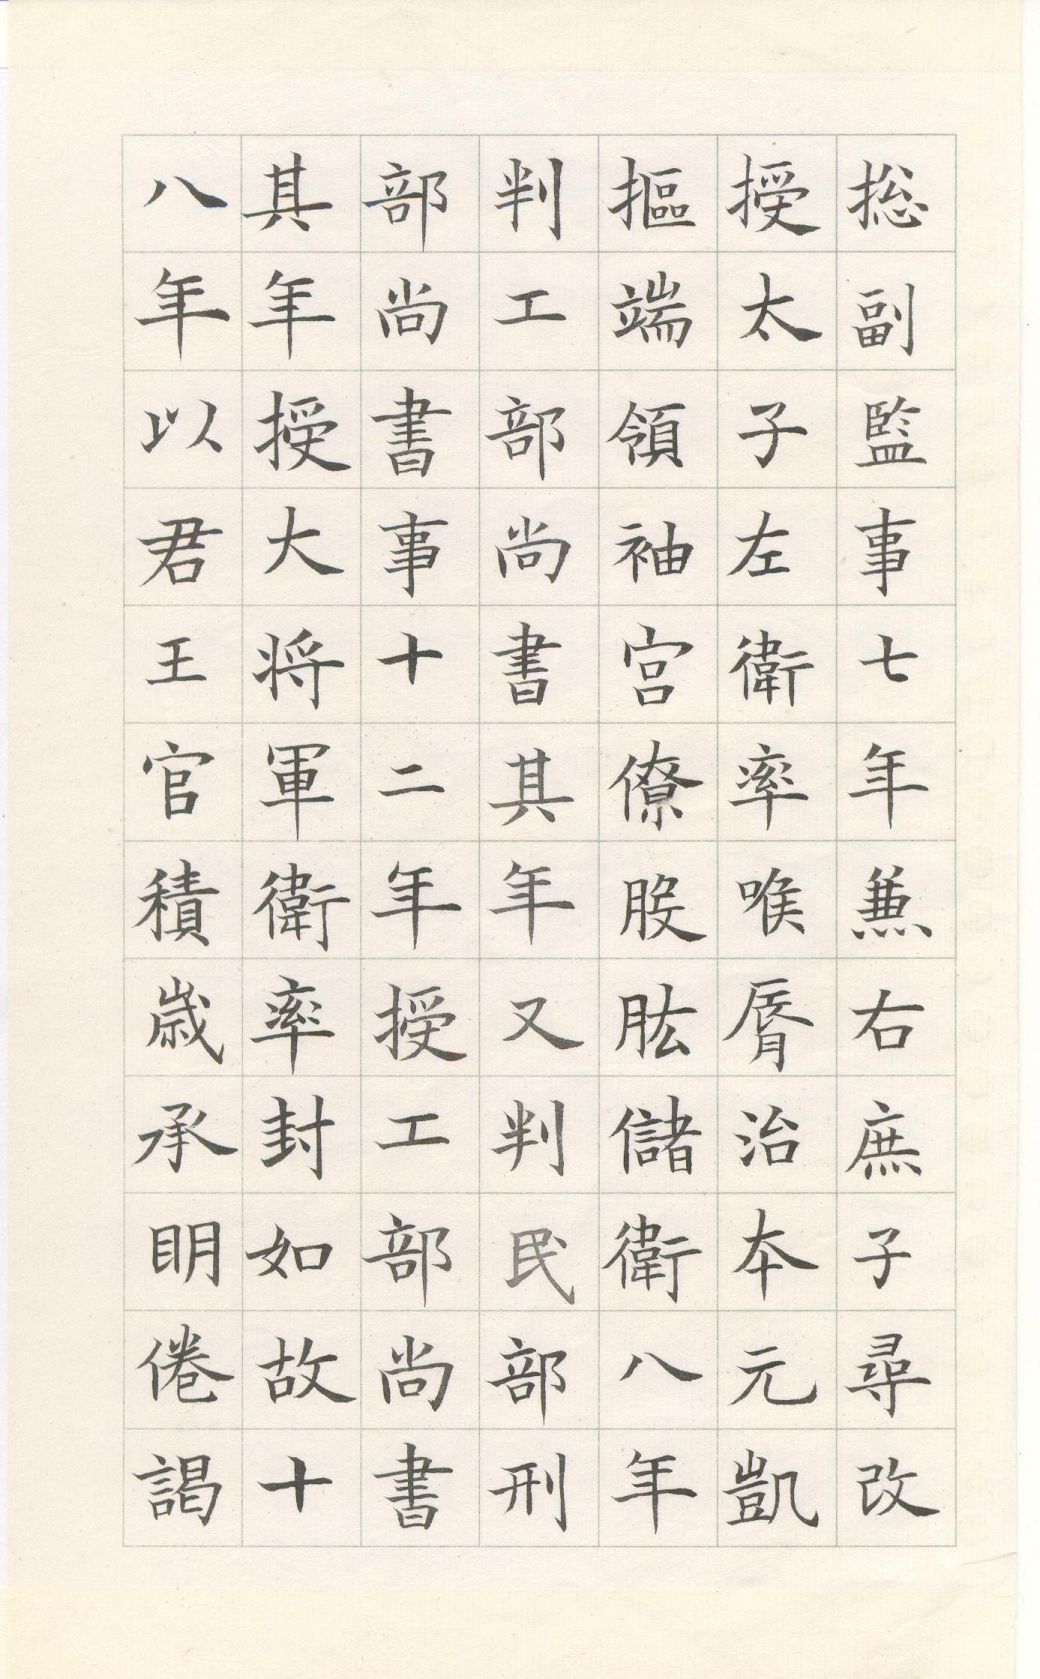 捴副監事七年兼右庶子尋改
授太子左衛率喉脣治本元凱
摳端領袖宫僚股肱儲衛八年
判工部尚書其年又判民部刑
部尚書事十二年授工部尚書
其年授大将軍衛率封如故十
八年以君王官積歳承明倦謁